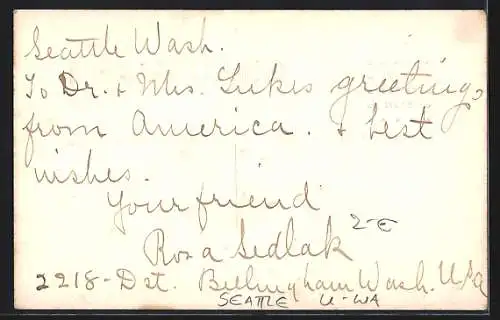 Seattle Wash.
To Dr. & Mrs. Lukes greetings
from America. & best
wishes.
Your friend
2-E
Rosa Sedlak
2218 - Dst. Bellingham Wash. USA
SEATTLE U-WA